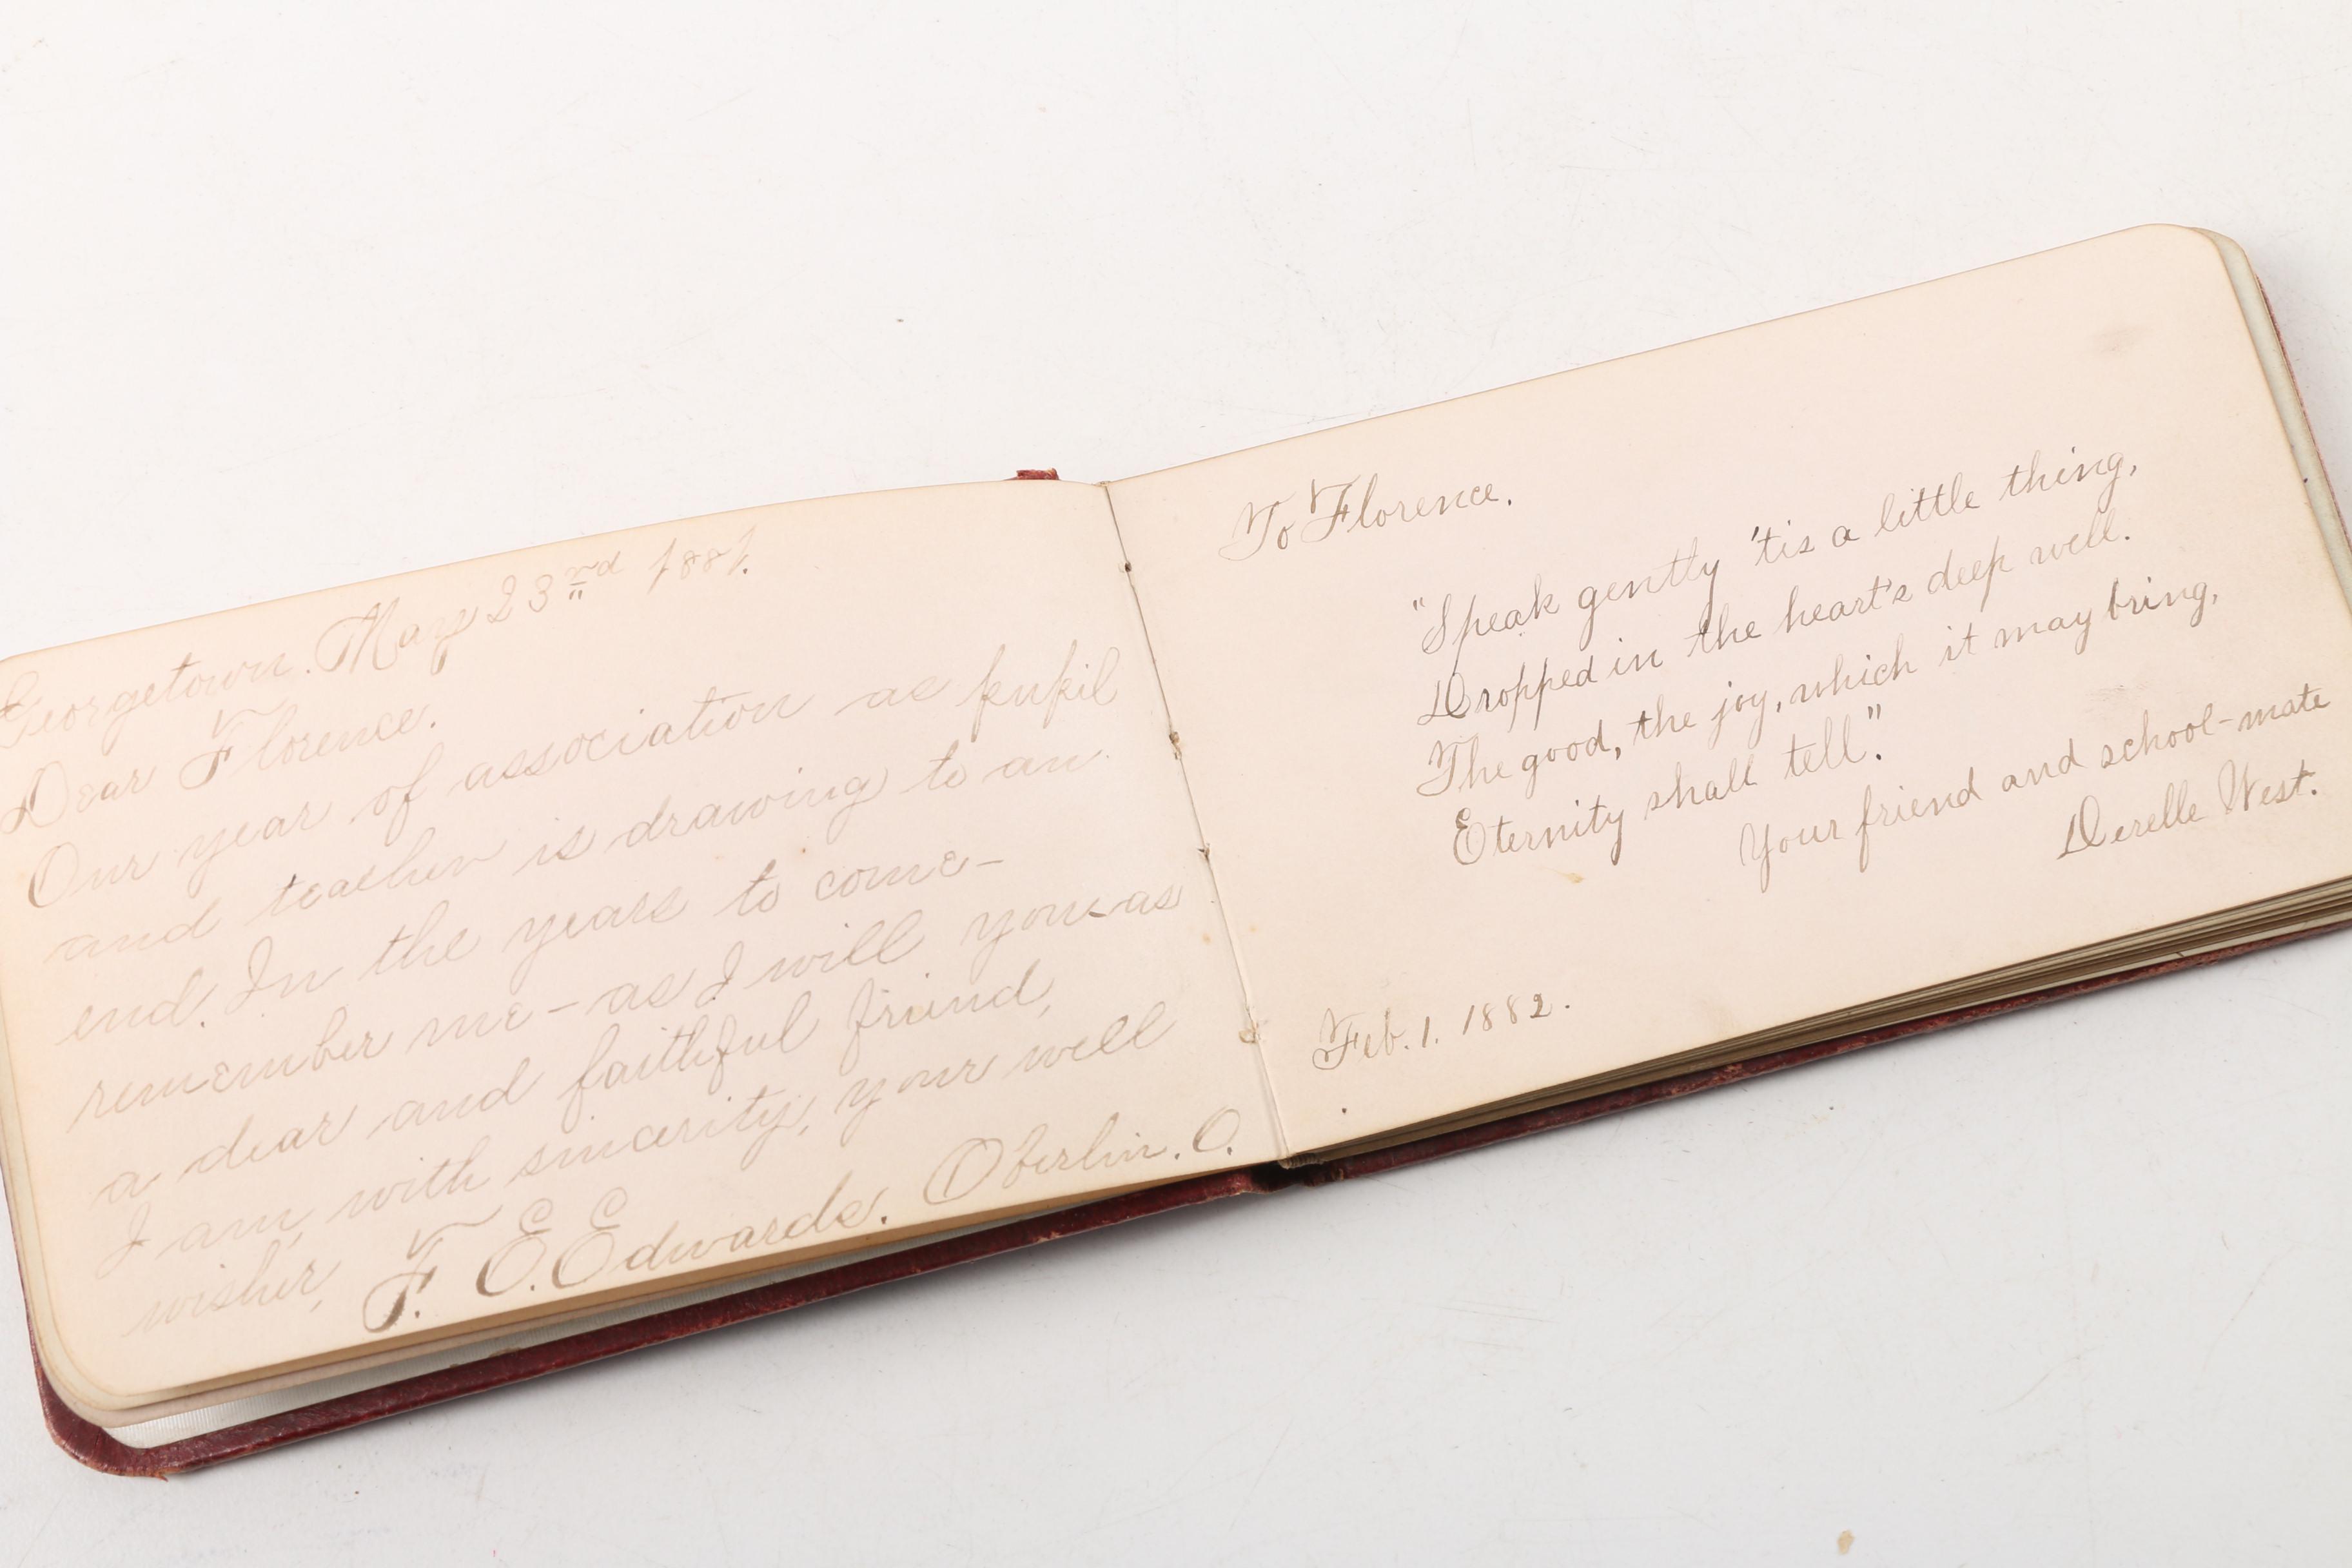 Georgetown. May 23rd 1881.
Dear Florence.
Our year of association as pupil
and teacher is drawing to an
end. In the years to come-
remember me - as I will you - as
a dear and faithful friend,
I am, with sincerity, your well
wisher, F. E. Edwards. Oberlin. O.
To Florence.
"Speak gently 'tis a little thing,
Dropped in the heart's deep well.
The good, the joy, which it may bring,
Eternity shall tell."
Your friend and school-mate
Derelle West.
Feb. 1. 1882.